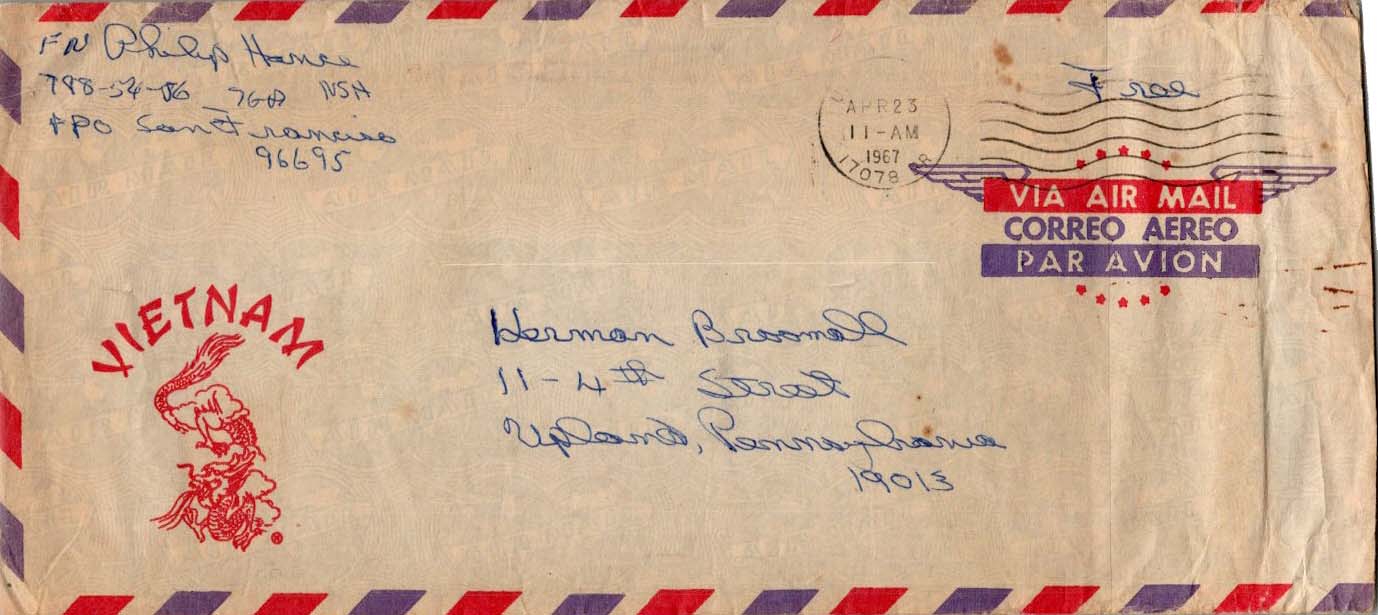 FN Philip Hance
788-54-86 _76A NSA
FPO San Francisco
96695
Free
APR 23
11-AM
1967
17078
VIA AIR MAIL
CORREO AEREO
PAR AVION
VIETNAM
®
Herman Broomall
11-4th Street
Upland, Pennsylvania
19013